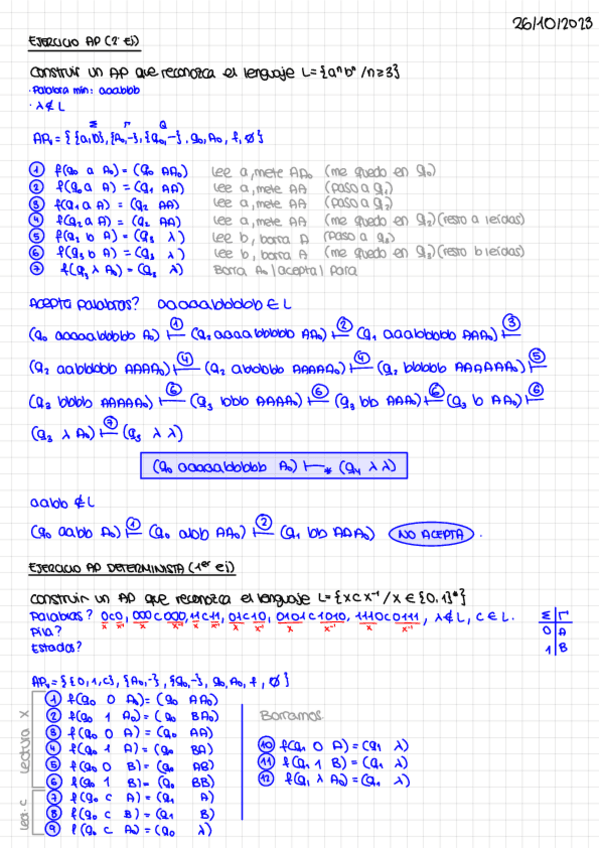 26/10/2023
EJERCICIO AP (2º Ej)
Construir un AP que reconozca el lenguaje L={aⁿbⁿ /n≥3}
· Palabra min: aaabbb
· λ∉L
Σ Γ Q
AP₁={ {a,b},{A₀,-},{q₀,-}, q₀, A₀, f, ∅}
① f(q₀ a A₀)=(q₀ AA₀) Lee a, mete AA₀ (me quedo en q₀)
② f(q₀ a A)=(q₁ AA) Lee a, mete AA (paso a q₁)
③ f(q₁ a A)=(q₂ AA) Lee a, mete AA (paso a q₂)
④ f(q₂ a A)=(q₂ AA) Lee a, mete AA (me quedo en q₂)(resto a leídas)
⑤ f(q₂ b A)=(q₃ λ) Lee b, borra A (paso a q₃)
⑥ f(q₃ b A)=(q₃ λ) Lee b, borra A (me quedo en q₃)(resto b leídas)
⑦ f(q₃ λ A₀)=(q₃ λ) Borra A₀ | acepta | para
Acepta palabras? aaaaabbbbb ∈ L
(q₀ aaaaabbbbb A₀) ⊢① (q₀ aaaabbbbb AA₀) ⊢② (q₁ aaabbbbb AAA₀) ⊢③
(q₂ aabbbbb AAAA₀) ⊢④ (q₂ abbbbb AAAAA₀) ⊢④ (q₂ bbbbb AAAAAA₀) ⊢⑤
(q₃ bbbb AAAAA₀) ⊢⑥ (q₃ bbb AAAA₀) ⊢⑥ (q₃ bb AAA₀) ⊢⑥ (q₃ b AA₀) ⊢⑥
(q₃ λ A₀) ⊢⑦ (q₃ λ λ)
(q₀ aaaaabbbbb A₀) ⊢* (q₄ λ λ)
aabb ∉ L
(q₀ aabb A₀) ⊢① (q₀ abb AA₀) ⊢② (q₁ bb AAA₀) NO ACEPTA .
EJERCICIO AP DETERMINISTA (1er ej)
Construir un AP que reconozca el lenguaje L={xcx⁻¹ /x∈{0,1}*}
Palabras? 0c0, 000c000, 11c11, 01c10, 0101c1010, 1110c0111, λ∉L, c∈L. Σ Γ
x x⁻¹ x x⁻¹ x x⁻¹ x x⁻¹ x x⁻¹ x x⁻¹
Pila? 0 A
Estados? 1 B
AP₁={ {0,1,c}, {A₀,-}, {q₀,-}, q₀, A₀, f, ∅}
Lectura x
① f(q₀ 0 A₀)=(q₀ AA₀)
② f(q₀ 1 A₀)=(q₀ BA₀)
③ f(q₀ 0 A)=(q₀ AA)
④ f(q₀ 1 A)=(q₀ BA)
⑤ f(q₀ 0 B)=(q₀ AB)
⑥ f(q₀ 1 B)=(q₀ BB)
Lect. c
⑦ f(q₀ c A)=(q₁ A)
⑧ f(q₀ c B)=(q₁ B)
⑨ f(q₀ c A₀)=(q₀ λ)
Borramos.
⑩ f(q₁ 0 A)=(q₁ λ)
⑪ f(q₁ 1 B)=(q₁ λ)
⑫ f(q₁ λ A₀)=(q₁ λ)